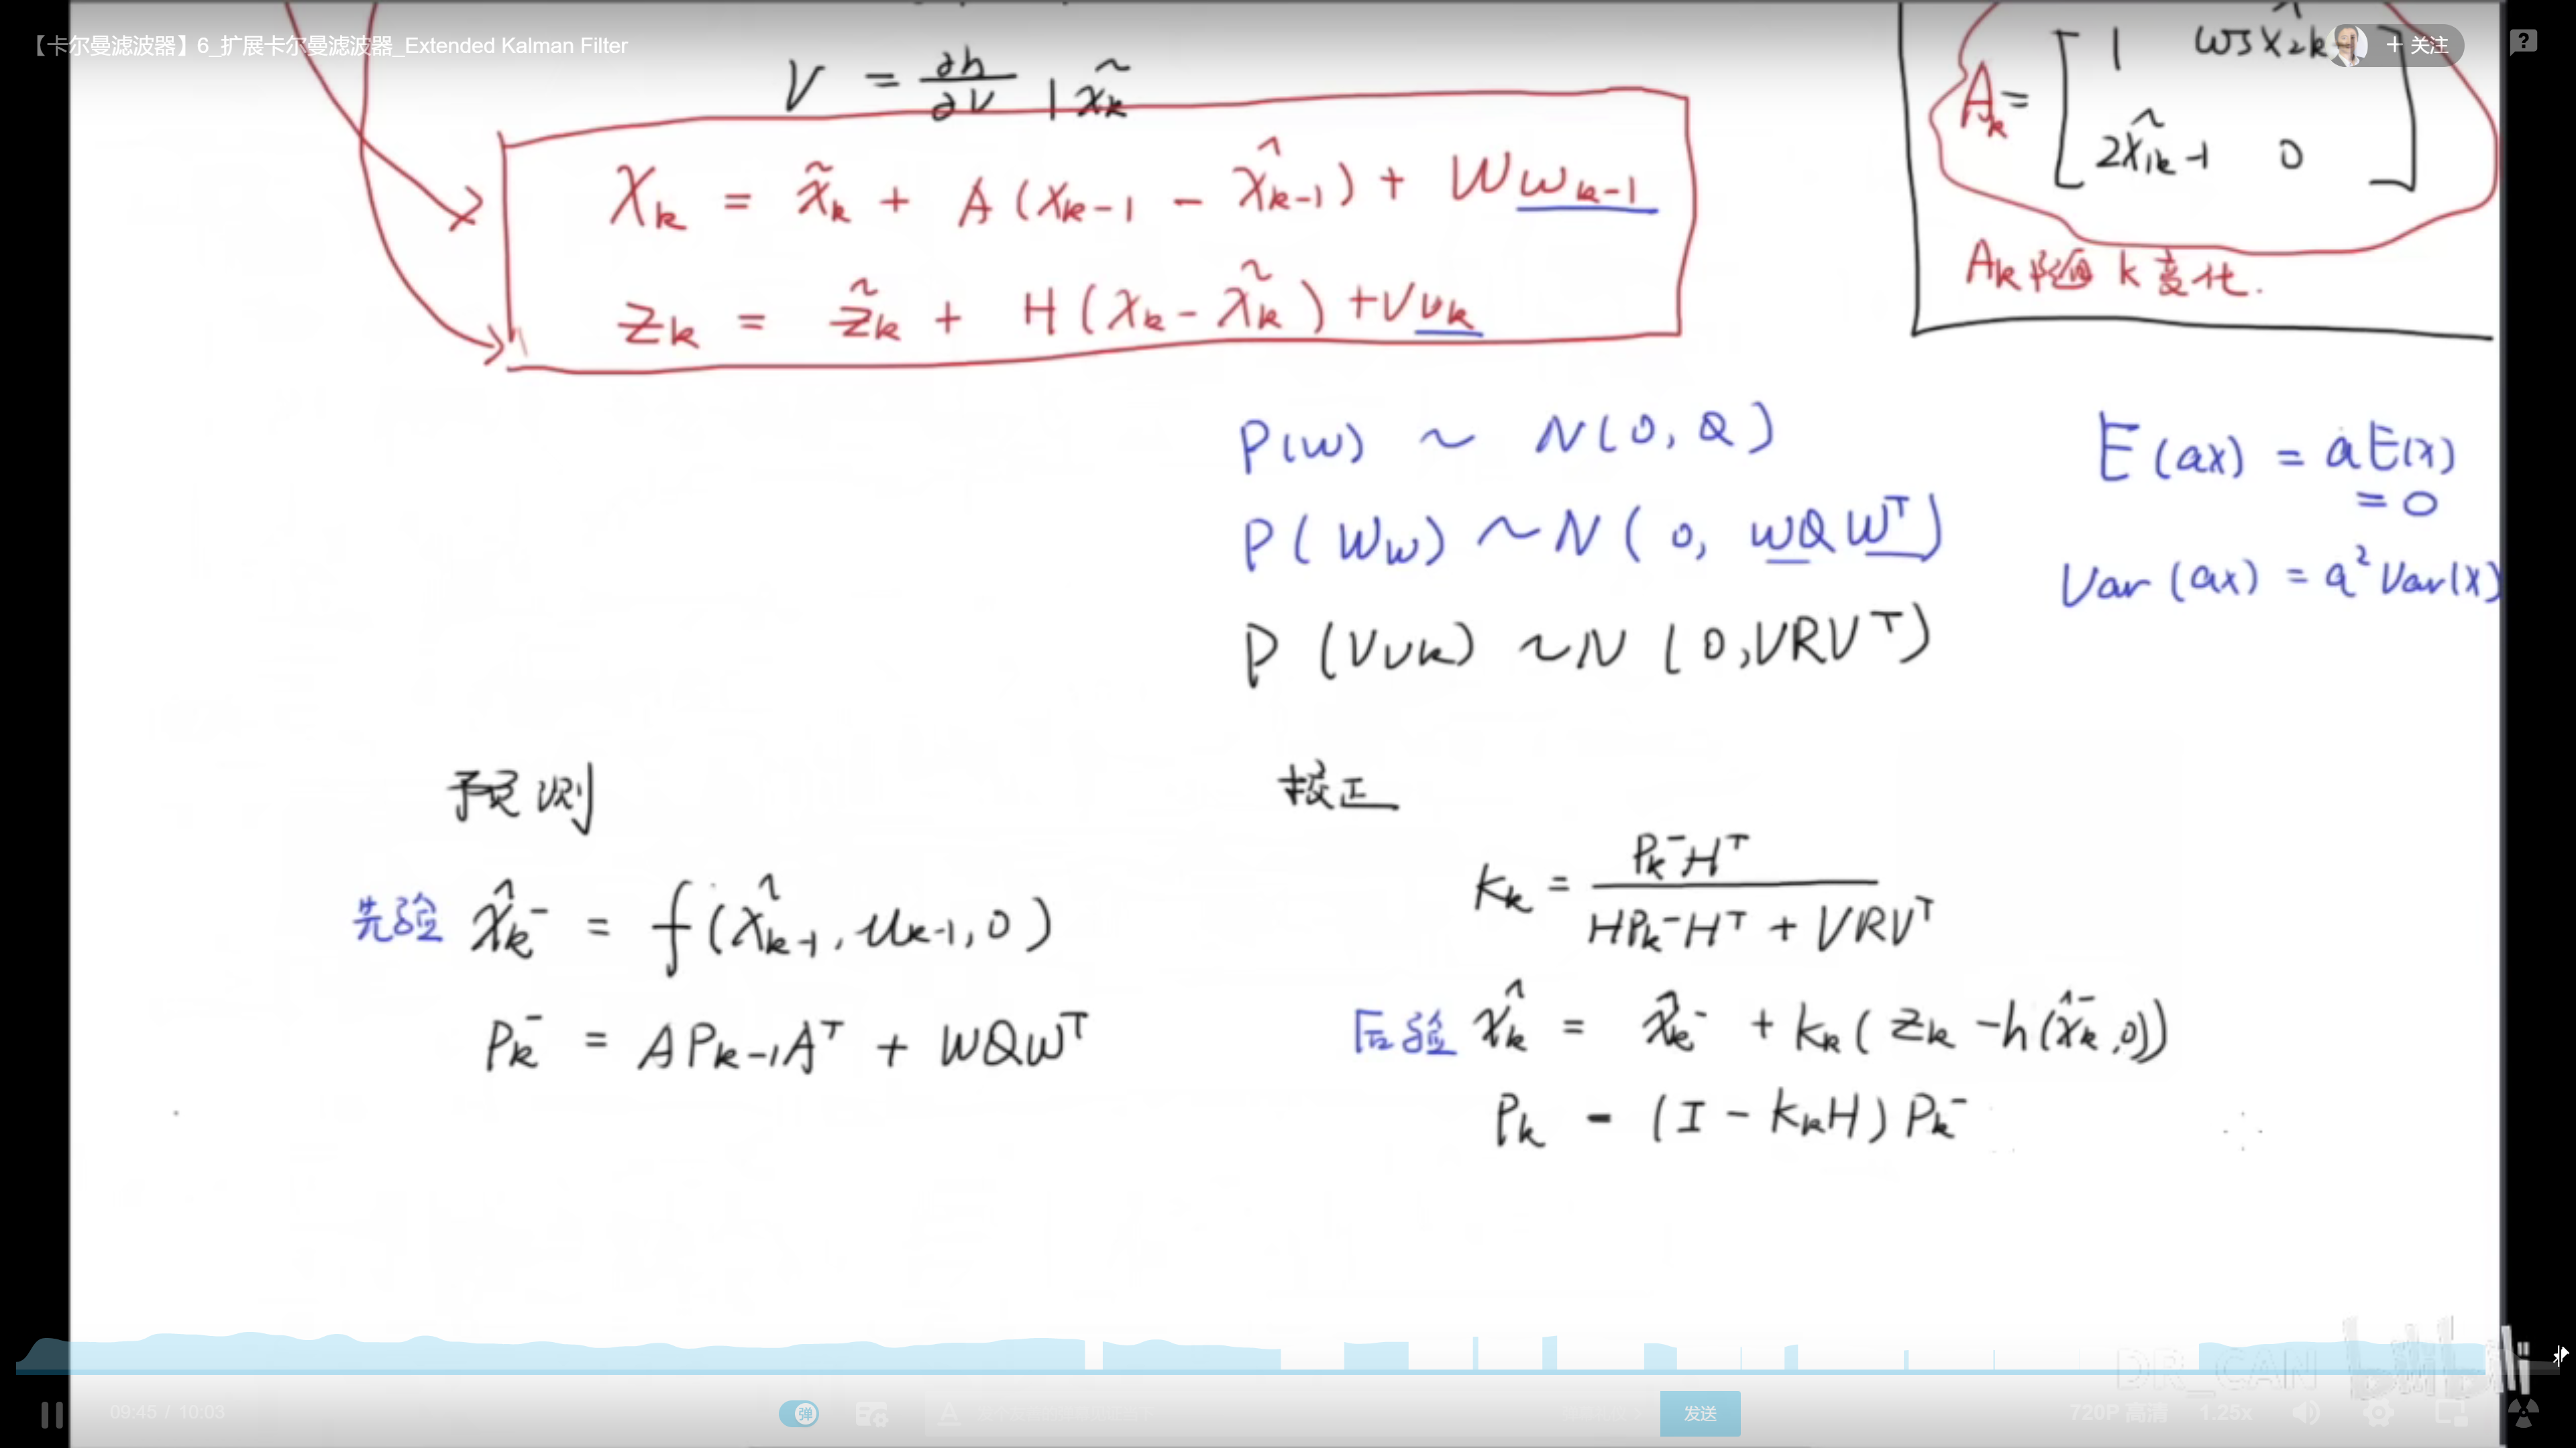 【卡尔曼滤波器】6_扩展卡尔曼滤波器_Extended Kalman Filter
+ 关注
V = ∂h/∂V | x̃k
Xk = x̃k + A(xk-1 - x̂k-1) + Wwk-1
zk = z̃k + H(xk - x̃k) + Vvk
Ak = [1 cos x̂2k
2x̂1k-1 0]
Ak 随 k 变化.
P(w) ~ N(0, Q)
P(Ww) ~ N(0, WQWᵀ)
P(Vvk) ~ N(0, VRVᵀ)
E(ax) = aE(x)
= 0
Var(ax) = a²Var(x)
预测
先验 x̂k⁻ = f(x̂k-1, uk-1, 0)
Pk⁻ = APk-1Aᵀ + WQWᵀ
校正
Kk = Pk⁻Hᵀ / HPk⁻Hᵀ + VRVᵀ
后验 x̂k = x̂k⁻ + Kk(zk - h(x̂k⁻, 0))
Pk = (I - KkH)Pk⁻
DR_CAN
bilibili
09:45 / 10:03
弹
发送
720P 高清
1.25x